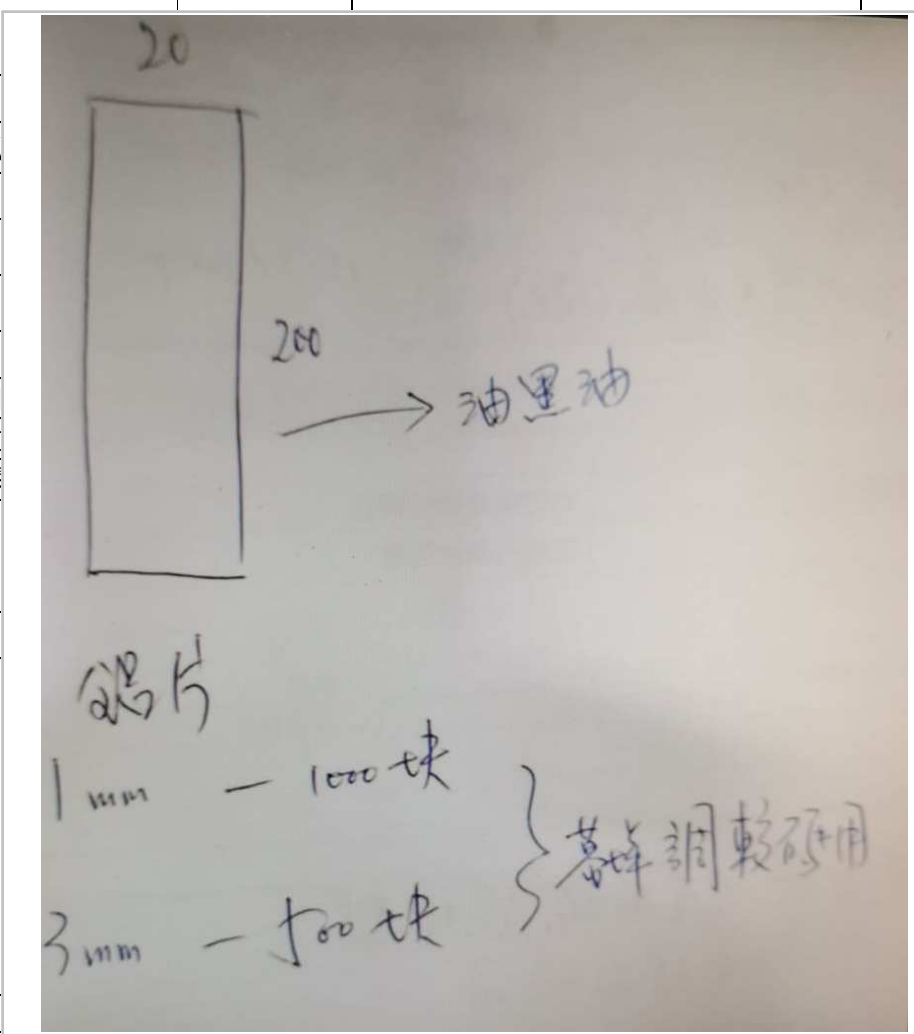 20
200
油黑油
鋁片
1mm — 1000块
3mm — 500块
幕焊調較砖用